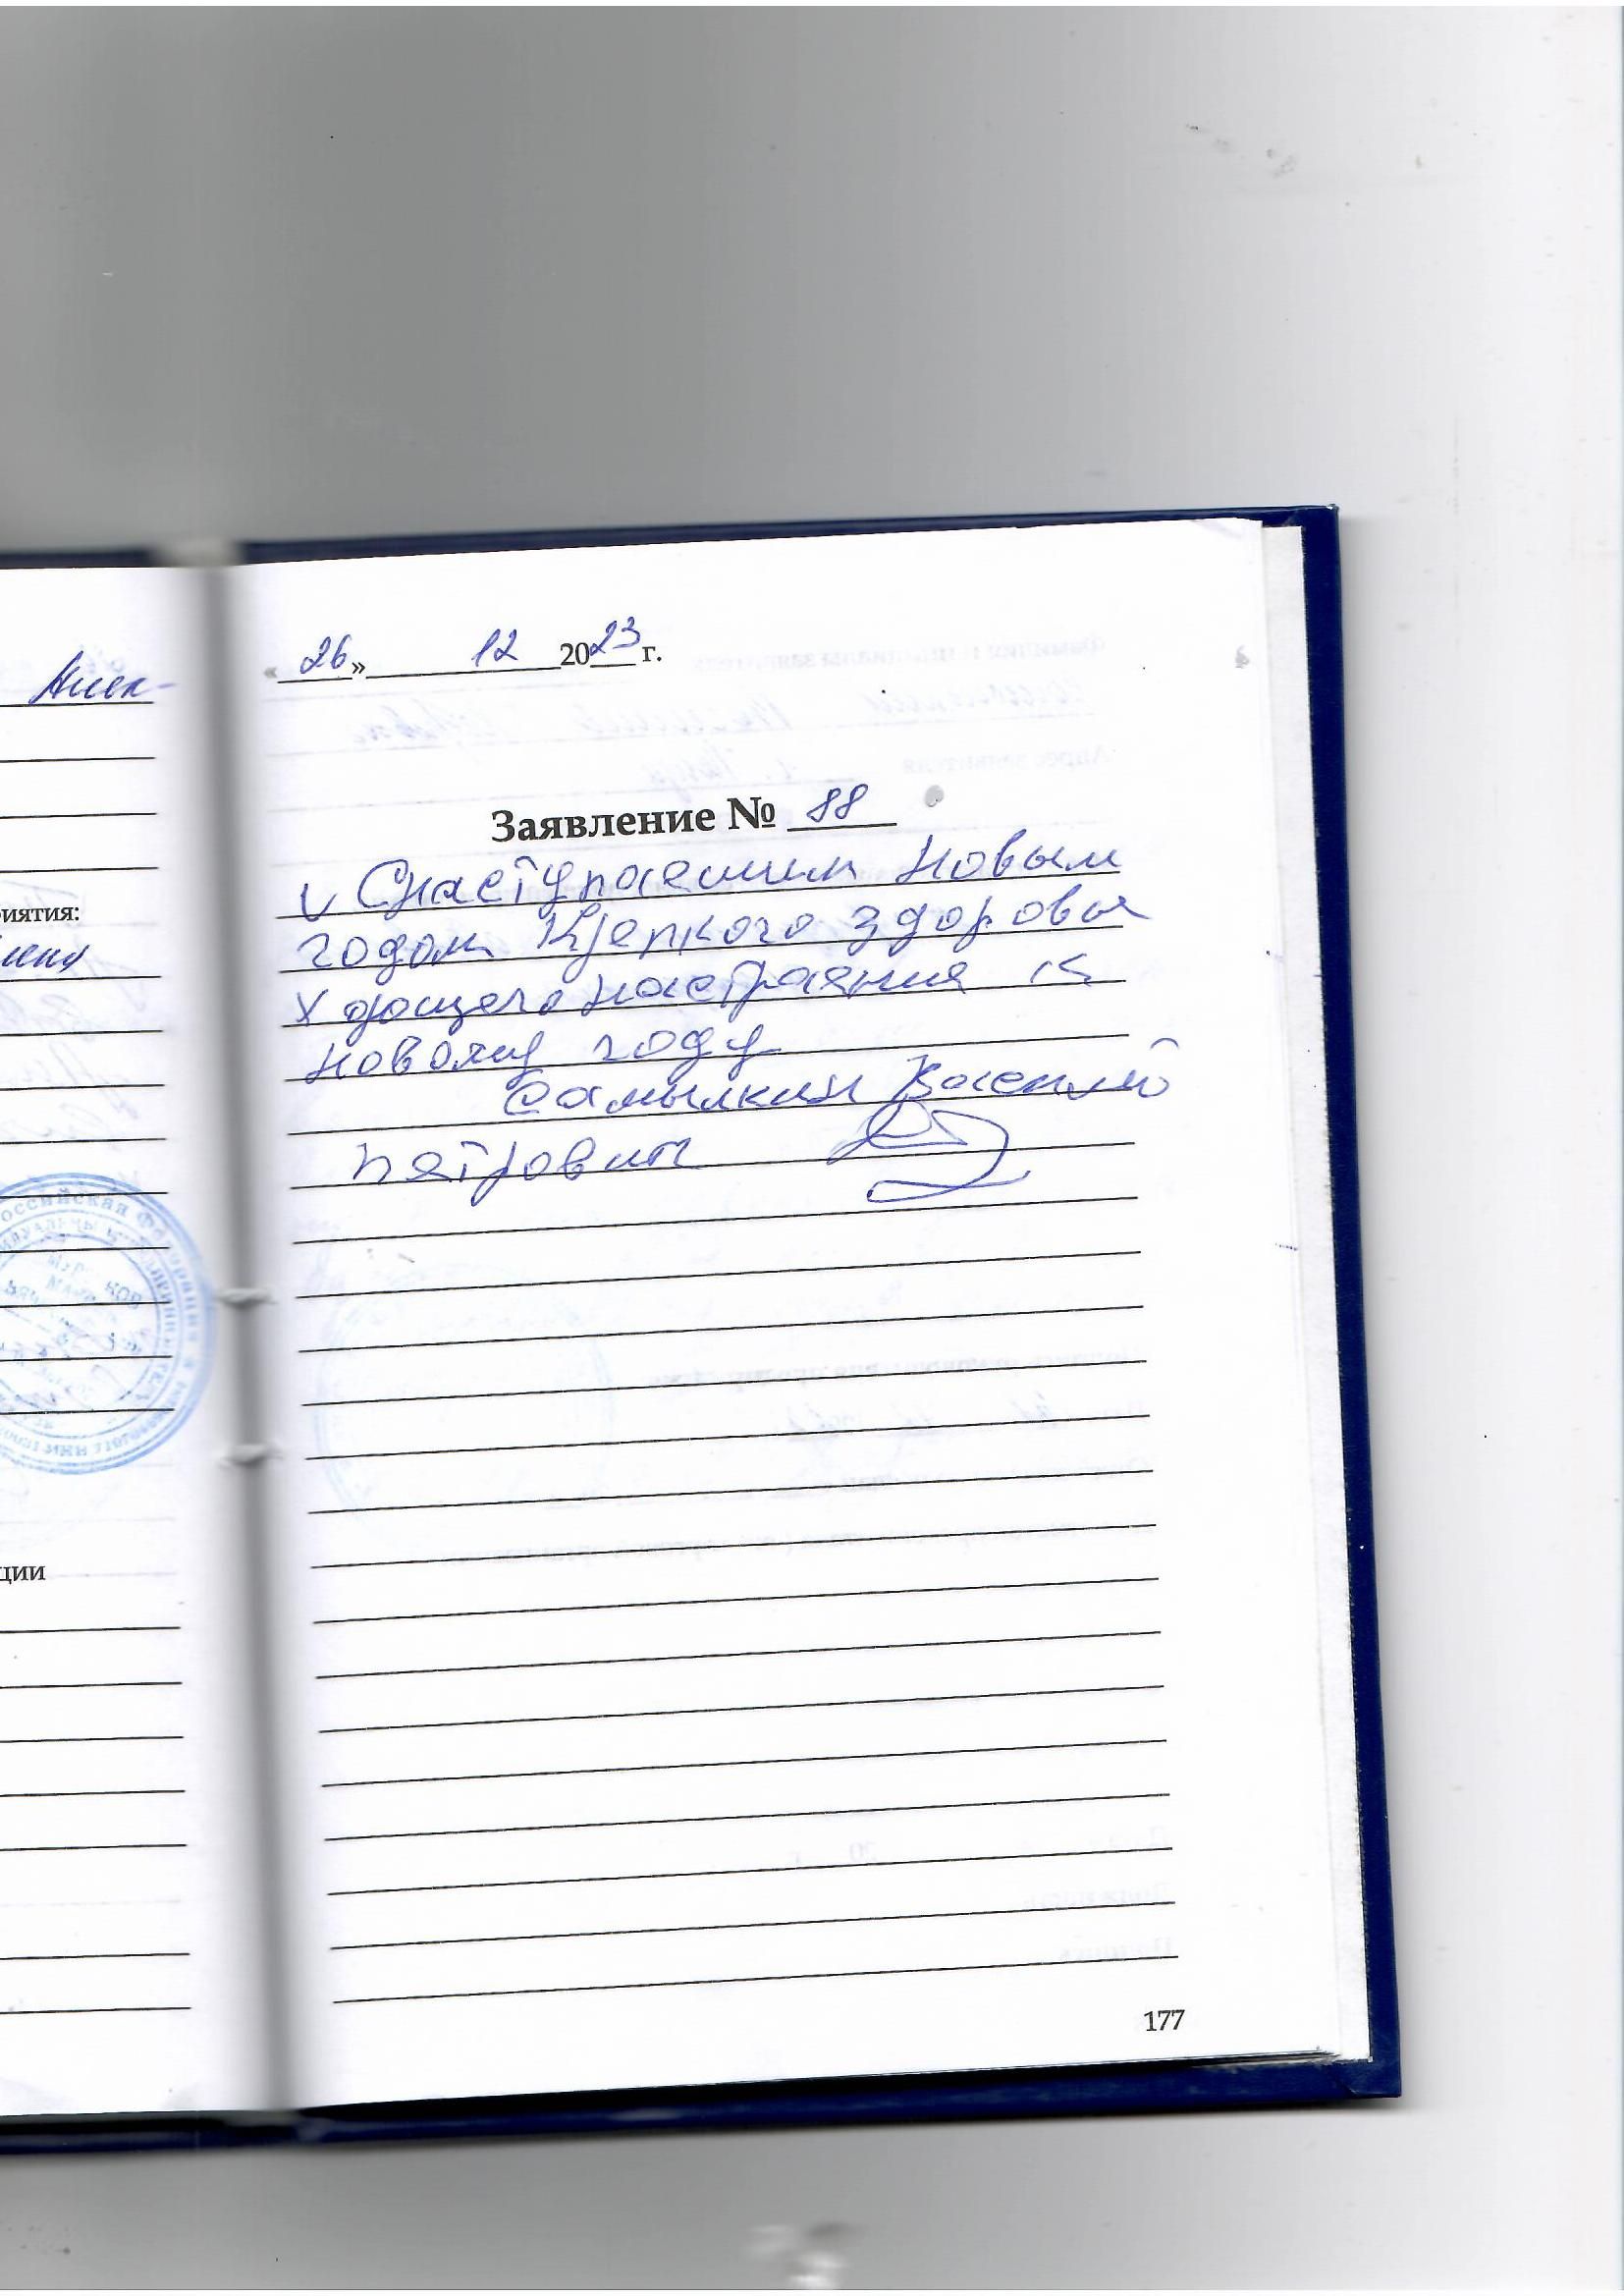 Алек-
риятия:
ции
«26» 12 2023 г.
Заявление № 88
V Снаступаешим Новым
годом Крепкого здоровья
Х орощего настраения к
новому году
Самылкин Василий
Петрович
177